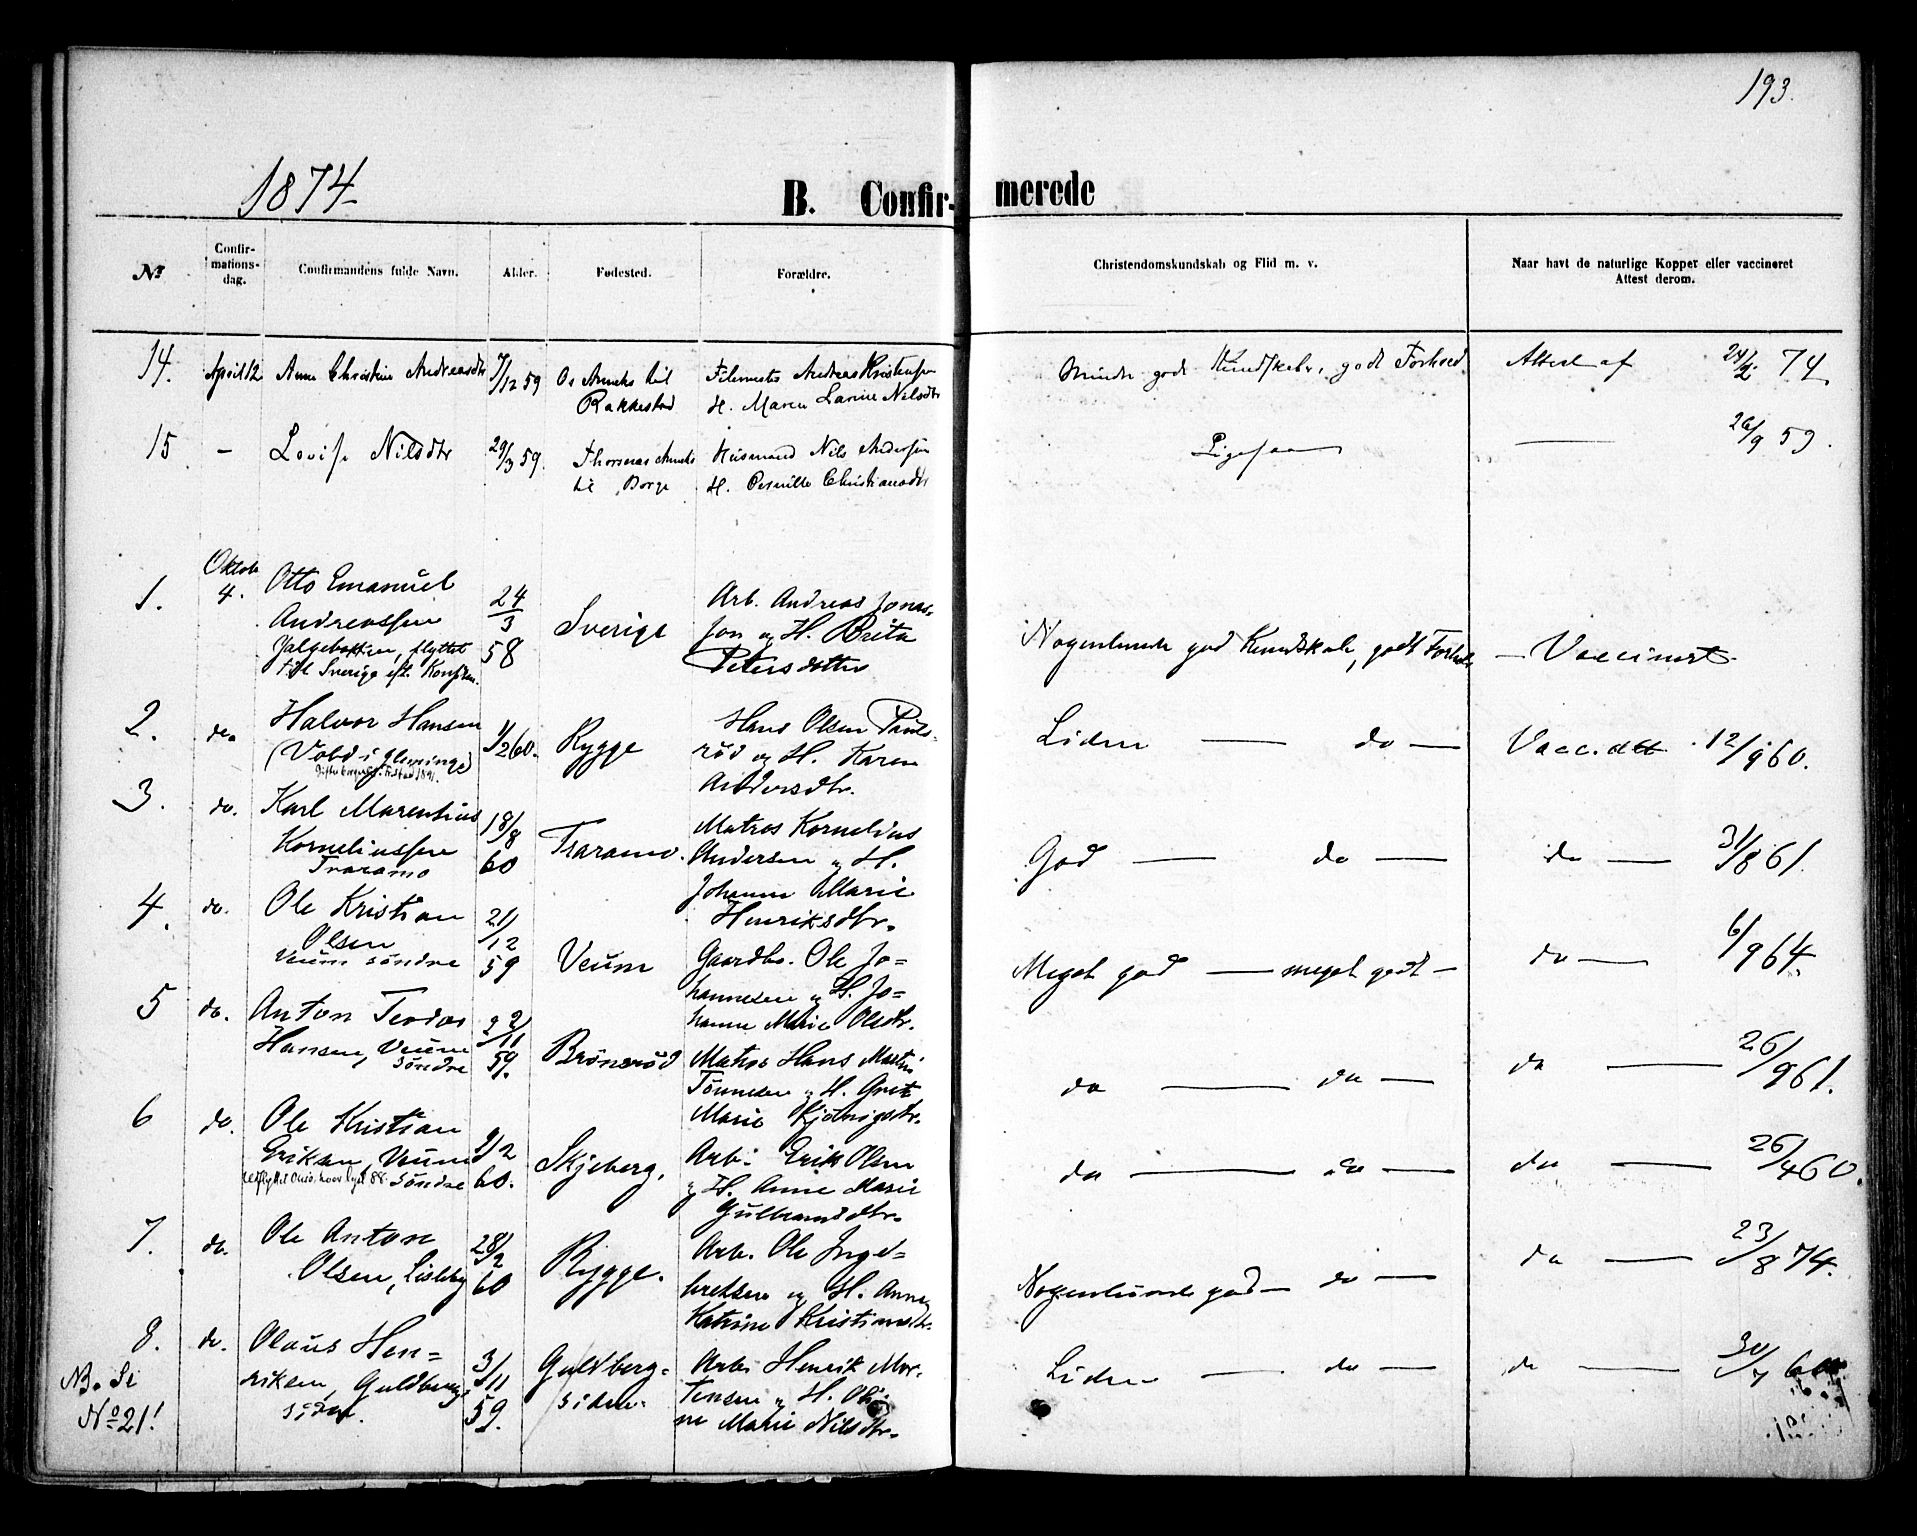 193.
1874
B. Confir-merede
No
Confir-
mations-
dag.
Confirmandens fulde Navn.
Alder.
Fødested.
Forældre.
Christendomskundskab og Flid m. v.
Naar havt de naturlige Kopper eller vaccineret
Attest derom.
14. April 12 Anne Christine Andreasdtr 7/12 59 Os Anneks til Andreas Kristensen
Rakkestad H. Maren Larine Nilsdtr
Mindre god Kundskab, godt Forhold Attest af 24/2 74
15 – Lovise Nilsdtr 29/3 59. Anneks Husmand Nils Andersen
til Borge H. Pernille Christiansdtr
Ligesaa — 26/9 59.
1. Oktob 4. Otto Emanuel
Andreassen
flyttet
til Sverige eft. Konfirm.
24/3
58
Sverige
Arb. Andreas Jonas-
son og H. Brita
Petersdatter
Nogenlunde god Kundskab, godt Forhold — Vaccinert
2. do Halvor Hansen
(Vold i Glemminge)
1/2 60. Rygge
Hans Olsen Pauls-
röd og H. Karen
Andersdtr.
Liden — do — Vacc. att 12/9 60.
3. do. Karl Marentius
Korneliussen
Traramo
18/8
60
Traramo.
Matros Kornelius
Andersen og H.
Johanne Marie
Henriksdtr.
God — do — do — 31/8 61.
4. do. Ole Kristian
Olsen
Veum söndre
21/12
59
Veum
Gaardbr. Ole Jo=
hannesen og H. Jo=
hanne Marie Olsdtr.
Meget god — meget godt — do — 6/9 64.
5 do. Anton Teodor
Hansen, Veum
Söndre
22/11
59.
Bröneröd
Matros Hans Martin
Tönnesen og H. Grete
Marie
do — do — do — 26/9 61.
6 do. Ole Kristian
Eriksen, Veum
Söndre
9/2
60.
Skjeberg.
Arb. Erik Olsen
og H. Anne Marie
Gulbrandsdtr.
do — do — do — 26/4 60.
7. do. Ole Anton
Olsen, Lisleby
28/2
60
Rygge.
Arb. Ole Inge=
bretsen og H. Anne
Katrine Kristiansdtr.
Nogenlunde god — do — do — 23/8 74.
8. do. Olaus Hen=
riksen, Guldberg
siden.
3/11
59.
Guldberg=
siden.
Arb. Henrik Mor-
tensen og H. Oli
ne Marie Nilsdtr.
Liden — do — do — 30/7 60
NB. Se
No 21!